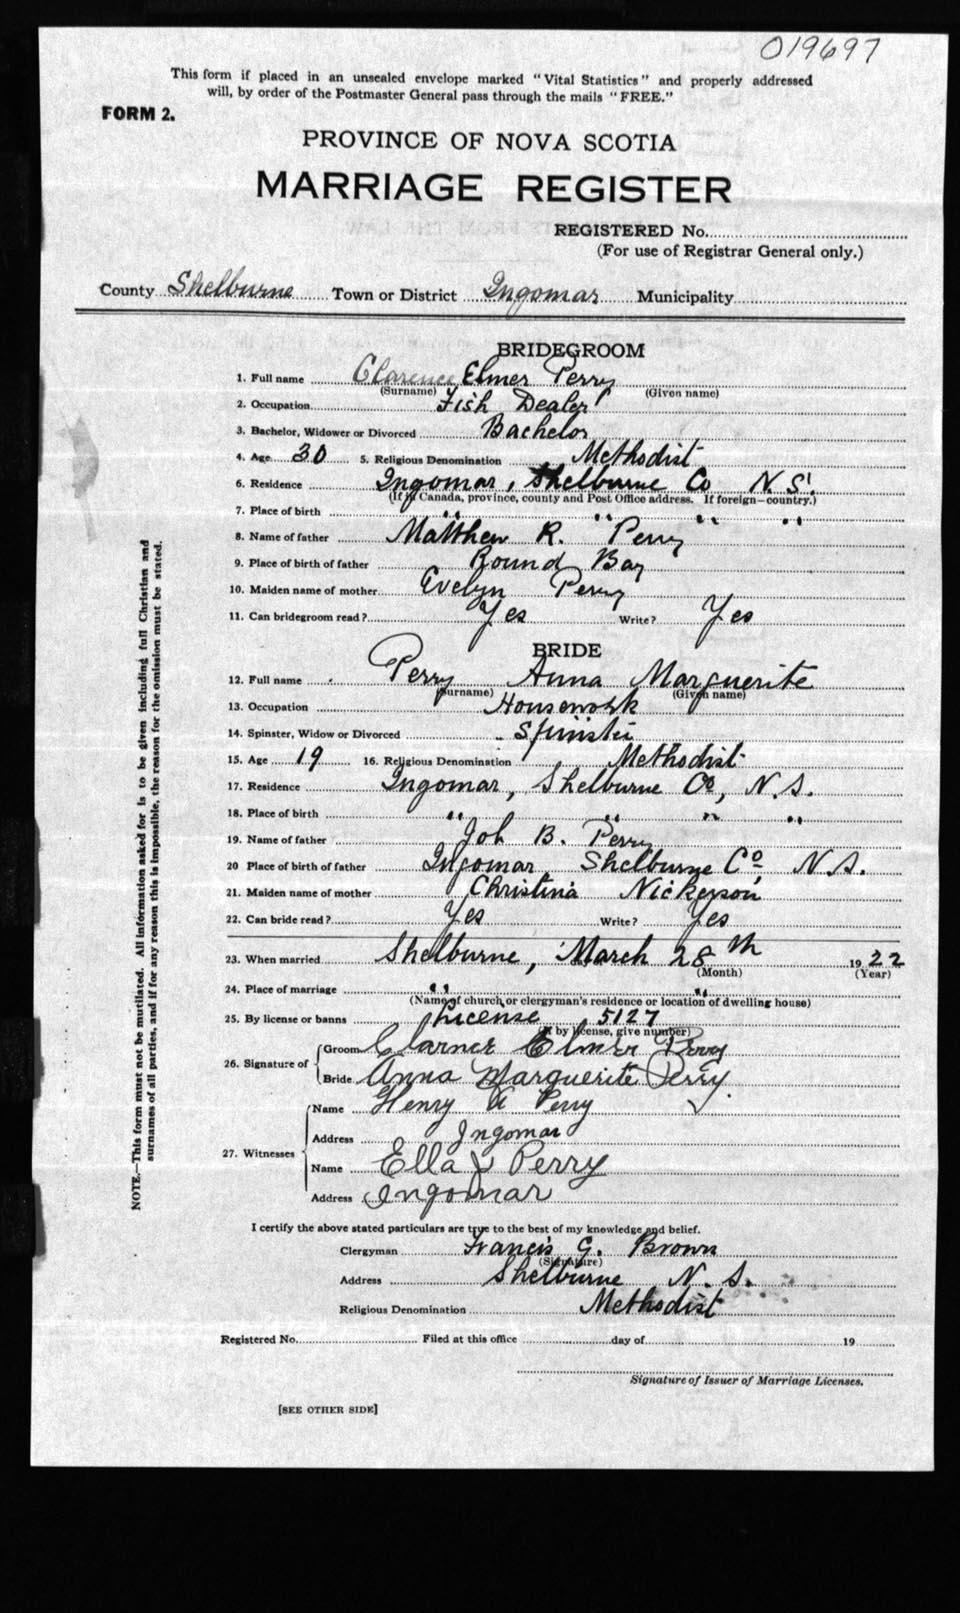 019697
This form if placed in an unsealed envelope marked "Vital Statistics" and properly addressed
will, by order of the Postmaster General pass through the mails "FREE."
FORM 2.
PROVINCE OF NOVA SCOTIA
MARRIAGE REGISTER
REGISTERED No.
(For use of Registrar General only.)
County Shelburne Town or District Ingomar Municipality
BRIDEGROOM
1. Full name Clarence Elmer Perry
(Surname) (Given name)
2. Occupation Fish Dealer
3. Bachelor, Widower or Divorced Bachelor
4. Age 30 5. Religious Denomination Methodist
6. Residence Ingomar, Shelburne Co N.S.
(If in Canada, province, county and Post Office address. If foreign—country.)
7. Place of birth " " " "
8. Name of father Matthew R. Perry
9. Place of birth of father Round Bay
10. Maiden name of mother Evelyn Perry
11. Can bridegroom read? Yes Write? Yes
BRIDE
12. Full name Perry Anna Marguerite
(Surname) (Given name)
13. Occupation Housework
14. Spinster, Widow or Divorced Spinster
15. Age 19 16. Religious Denomination Methodist
17. Residence Ingomar, Shelburne Co, N.S.
18. Place of birth " " " "
19. Name of father Job B. Perry
20 Place of birth of father Ingomar Shelburne Co. N.S.
21. Maiden name of mother Christina Nickerson
22. Can bride read? Yes Write? Yes
23. When married Shelburne, March 28th 1922
(Month) (Year)
24. Place of marriage " "
(Name of church or clergyman's residence or location of dwelling house)
25. By license or banns License 5127
(If by license, give number)
26. Signature of Groom Clarnce Elmer Perry
Bride Anna Marguerite Perry
27. Witnesses Name Henry A Perry
Address Ingomar
Name Ella J Perry
Address Ingomar
I certify the above stated particulars are true to the best of my knowledge and belief.
Clergyman Francis G. Brown
(Signature)
Address Shelburne N.S.
Religious Denomination Methodist
Registered No. Filed at this office day of 19
Signature of Issuer of Marriage Licenses.
[SEE OTHER SIDE]
NOTE.—This form must not be mutilated. All information asked for is to be given including full Christian and
surnames of all parties, and if for any reason this is impossible, the reason for the omission must be stated.